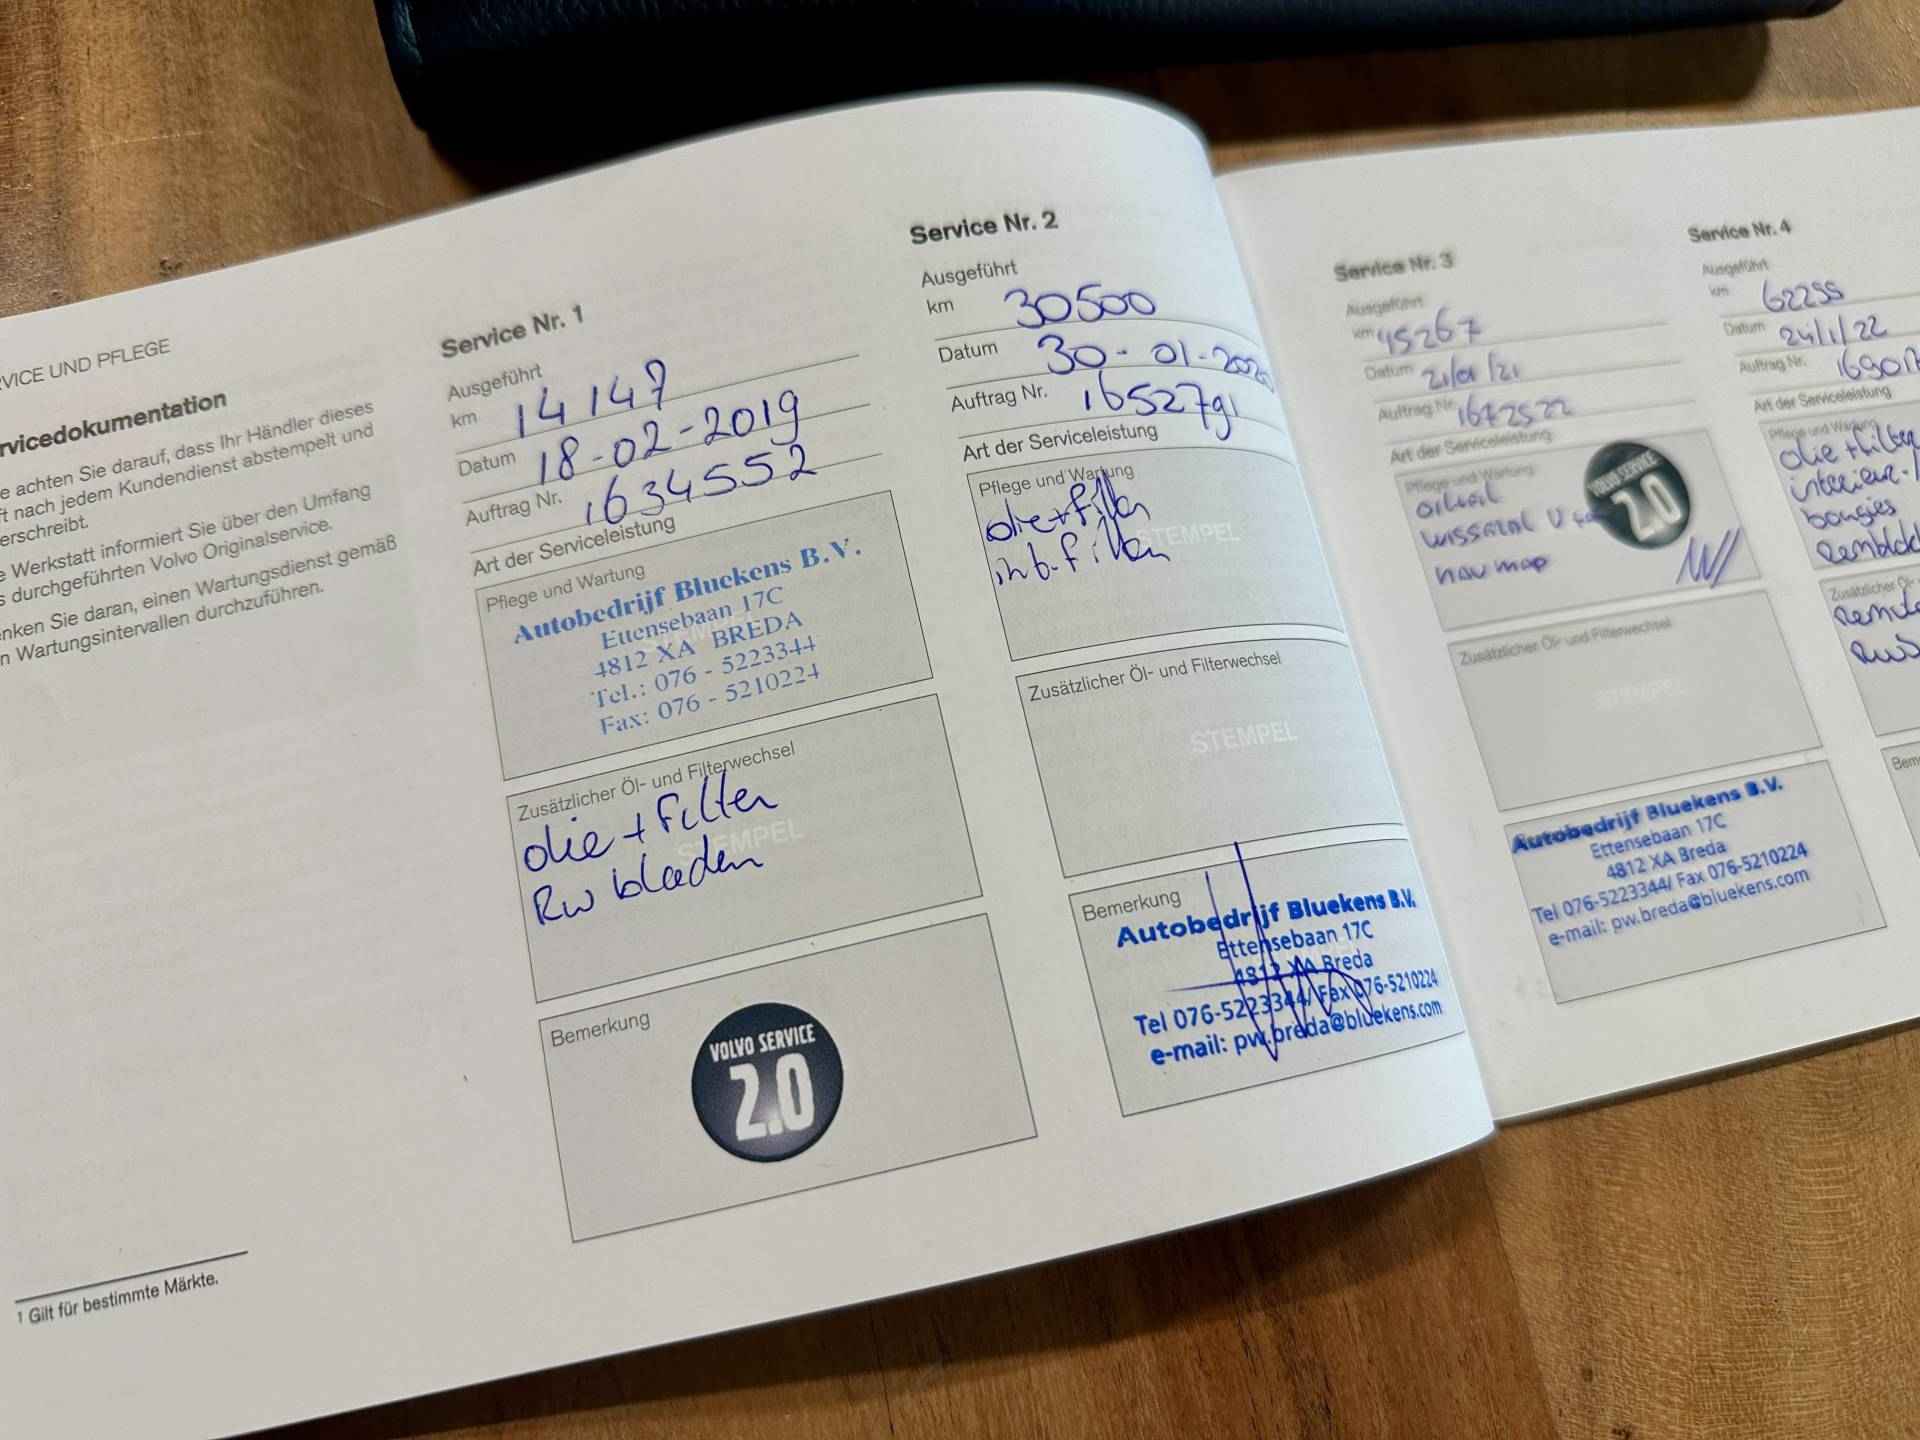 VICE UND PFLEGE
rvicedokumentation
e achten Sie darauf, dass Ihr Händler dieses
ft nach jedem Kundendienst abstempelt und
erschreibt.
e Werkstatt informiert Sie über den Umfang
s durchgeführten Volvo Originalservice.
nken Sie daran, einen Wartungsdienst gemäß
n Wartungsintervallen durchzuführen.
1 Gilt für bestimmte Märkte.
Service Nr. 1
Ausgeführt
km 14147
Datum 18-02-2019
Auftrag Nr. 1634552
Art der Serviceleistung
Pflege und Wartung
Autobedrijf Bluekens B.V.
Ettensebaan 17C
4812 XA BREDA
Tel.: 076 - 5223344
Fax: 076 - 5210224
Zusätzlicher Öl- und Filterwechsel
STEMPEL
olie + filter
RW bladen
Bemerkung
VOLVO SERVICE
2.0
Service Nr. 2
Ausgeführt
km 30500
Datum 30-01-2020
Auftrag Nr. 1652791
Art der Serviceleistung
Pflege und Wartung
STEMPEL
olie+filter
Zusätzlicher Öl- und Filterwechsel
STEMPEL
Bemerkung
Autobedrijf Bluekens B.V.
Ettensebaan 17C
4812 XA Breda
Tel 076-5223344/ Fax 076-5210224
e-mail: pw.breda@bluekens.com
Service Nr. 3
Ausgeführt
km 45267
Datum 21/01/21
Auftrag Nr. 1672522
Art der Serviceleistung
Pflege und Wartung
VOLVO SERVICE
2.0
nav map
Zusätzlicher Öl- und Filterwechsel
STEMPEL
Autobedrijf Bluekens B.V.
Ettensebaan 17C
4812 XA Breda
Tel 076-5223344/ Fax 076-5210224
e-mail: pw.breda@bluekens.com
Service Nr. 4
Ausgeführt
km 62255
Datum 24/1/22
Auftrag Nr. 16901
Art der Serviceleistung
Pflege und Wartung
olie+filter
interieur-
bougies
Zusätzlicher Öl-
Bem